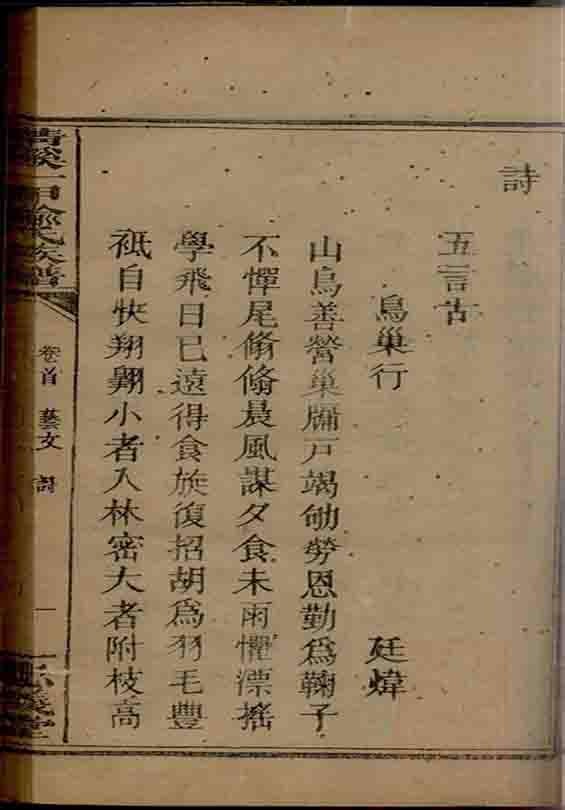 詩
五言古
鳥巢行 廷煒
山鳥善營巢牖戸竭劬勞恩勤為鞠子
不憚尾翛翛晨風謀夕食未雨懼漂搖
學飛日已遠得食族復招胡為羽毛豐
祗自快翔翺小者入林密大者附枝高
氏族譜
卷首 藝文 詩
一